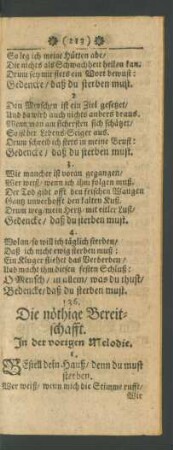 (113)
So leg ich meine Hütten abe/
Die nichts als Schwachheit hegen kan.
Drum sey mir stets ein Wort bewust:
Gedencke/ daß du sterben must.
2
Den Menschen ist ein Ziel gesetzet/
Und da wird auch nichts anders draus.
Wenn man am sichersten sich schätzet/
So ist der Lebens-Seiger aus.
Drum schreib ich stets in meine Brust:
Gedencke/ daß du sterben must.
3.
Wie mancher ist voran gegangen/
Wer weiß/ wenn ich ihm folgen muß.
Der Tod gibt offt den frischen Wangen
Gantz unverhofft den kalten Kuß.
Drum weg mein Hertz mit eitler Lust/
Gedencke/ daß du sterben must.
4.
Wolan/ so will ich täglich sterben/
Daß ich nicht ewig sterben muß:
Ein Kluger fliehet das Verderben/
Und macht ihm diesen festen Schluß:
O Mensch/ in allem/ was du thust/
Bedencke/ daß du sterben must.
136.
Die nöthige Bereit-
schafft.
In der vorigen Melodie.
1.
BEstell dein Hauß/ denn du must
sterben.
Wer weiß/ wenn mich die Stimme rufft/
Wie